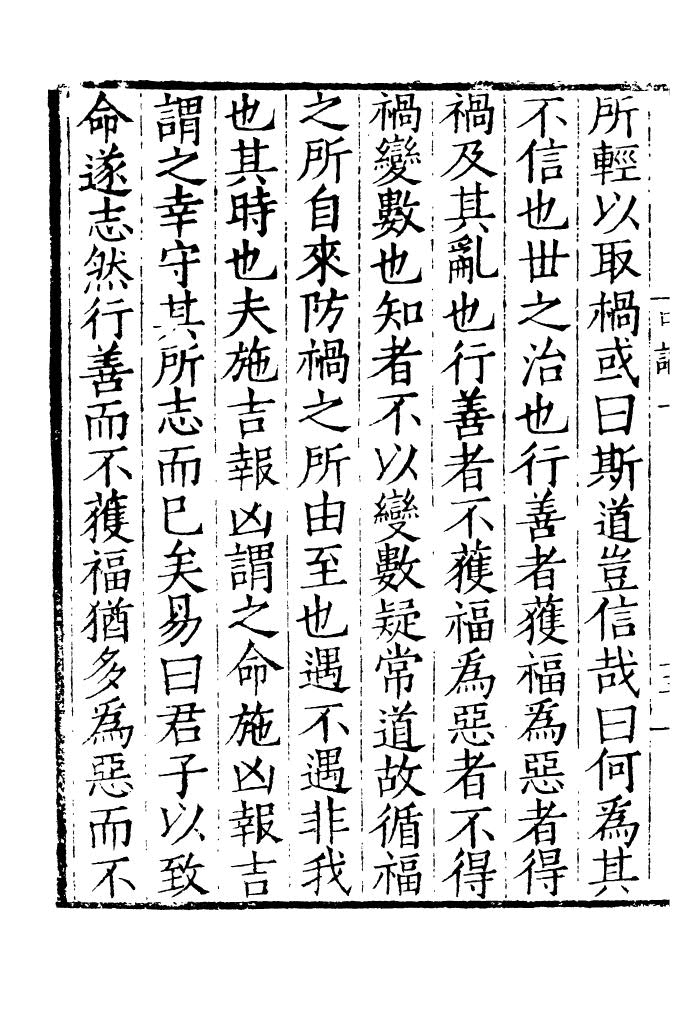 所輕以取禍或曰斯道豈信哉曰何為其
不信也丗之治也行善者獲福為惡者得
禍及其亂也行善者不獲福為惡者不得
禍變數也知者不以變數疑常道故循福
之所自來防禍之所由至也遇不遇非我
也其時也夫施吉報凶謂之命施凶報吉
謂之幸守其所志而已矣易曰君子以致
命遂志然行善而不獲福猶多為惡而不